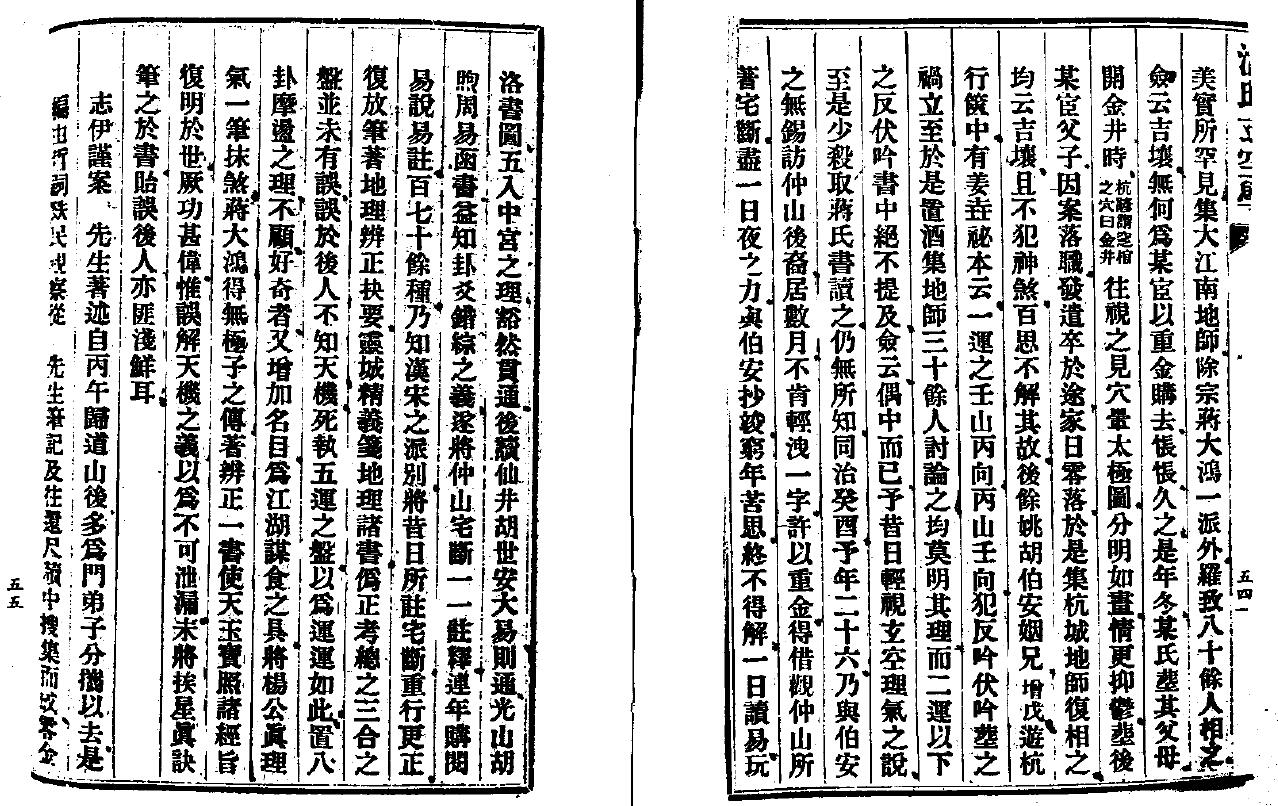 美實所罕見集大江南地師除宗蔣大鴻一派外羅致八十餘人相之
僉云吉壤無何為某宦以重金購去悵悵久之是年冬某氏塟其父母
開金井時杭諺謂空棺之穴曰金井往視之見穴暈太極圖分明如畫情更抑鬱塟後
某宦父子因案落職發遣卒於途家日零落於是集杭城地師復相之
均云吉壤且不犯神煞百思不解其故後餘姚胡伯安姻兄增戊遊杭
行篋中有姜垚祕本云一運之壬山丙向丙山壬向犯反吟伏吟塟之
禍立至於是置酒集地師三十餘人討論之均莫明其理而二運以下
之反伏吟書中絕不提及僉云偶中而已予昔日輕視玄空理氣之說
至是少殺取蔣氏書讀之仍無所知同治癸酉予年二十六乃與伯安
之無錫訪仲山後裔居數月不肯輕洩一字許以重金得借觀仲山所
著宅斷盡一日夜之力與伯安抄竣窮年苦思終不得解一日讀易玩
五四
洛書圖五入中宮之理豁然貫通後讀仙井胡世安大易則通光山胡
煦周易函書益知卦爻錯綜之義遂將仲山宅斷一一註釋連年購閱
易說易註百七十餘種乃知漢宋之派別將昔日所註宅斷重行更正
復放筆著地理辨正抉要靈城精義箋地理諸書偽正考總之三合之
盤並未有誤誤於後人不知天機死執五運之盤以為運運如此置八
卦摩盪之理不顧好奇者又增加名目為江湖謀食之具將楊公眞理
氣一筆抹煞蔣大鴻得無極子之傳著辨正一書使天玉寶照諸經旨
復明於世厥功甚偉惟誤解天機之義以為不可泄漏未將挨星眞訣
筆之於書貽誤後人亦匪淺鮮耳
志伊謹案先生著述自丙午歸道山後多為門弟子分攜以去是
編也所詞民察從先生筆記及往還尺牘中搜集而成零金
五五